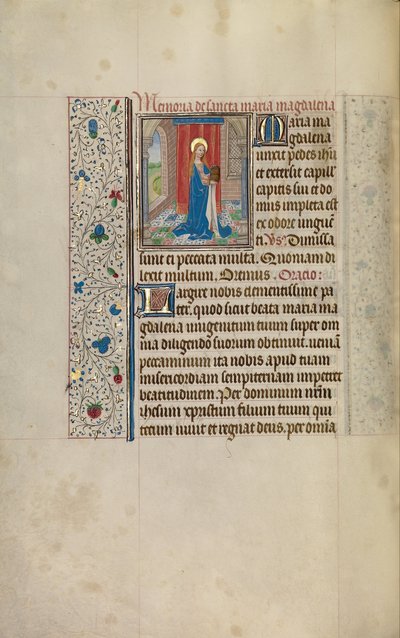 Memoria de sancta maria magdalena
Maria ma
gdalena
unxit pedes ihu
et extersit capill
capitis sui et do
mus impleta est
ex odore unguē
ti Vs. Dimissa
sunt ei peccata multa. Quoniam di
lexit multum. Oremus. Oracio:
Largire nobis clementissime pa
ter. quod sicut beata maria ma
gdalena unigenitum tuum super om
nia diligendo suorum obtinuit ueniā
peccaminum ita nobis apud tuam
misericordiam sempiternam impetret
beatitudinem. Per dominum nrm
ihesum xpristum filium tuum qui
tecum uiuit et regnat deus. per omia